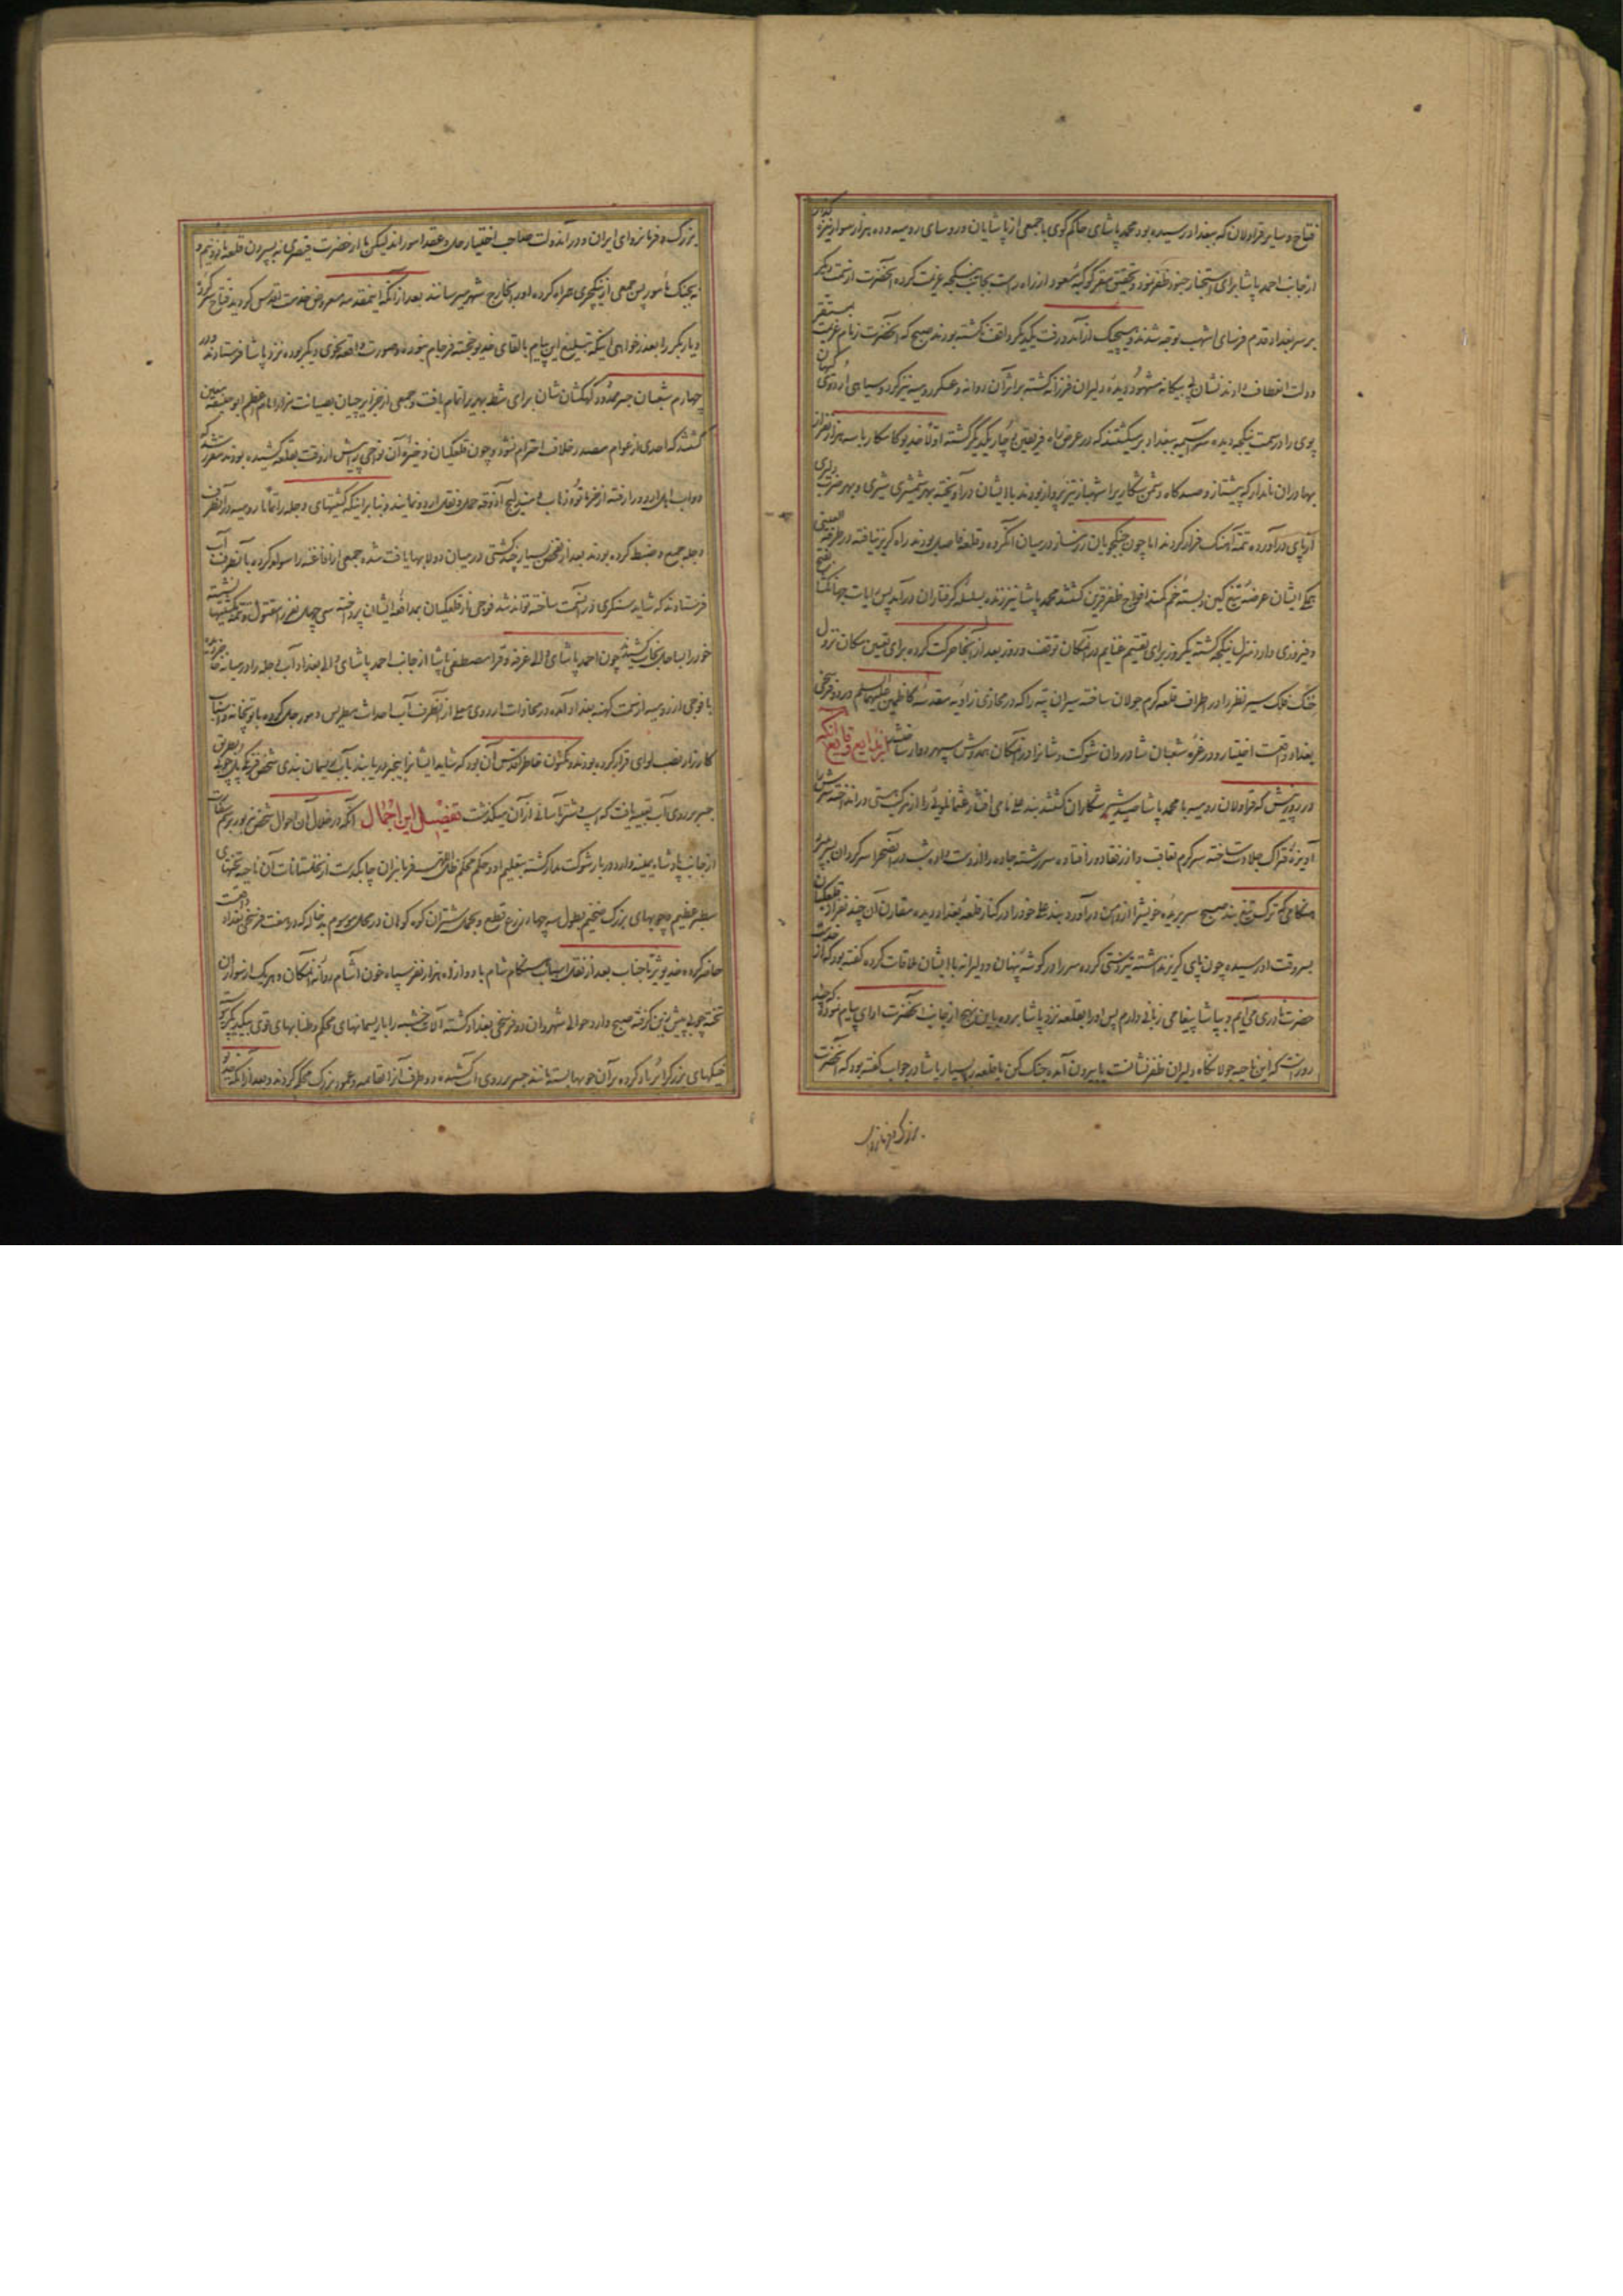 فتاح و سایر قراولان که ببغداد رسیده بود محمد پاشای حاکم کوی با جمعی از پاشایان و روسای رومیه و ده هزار سوار نیزه گذار
از جانب احمد پاشا برای استخبار جنود ظفرنمود و تحقیق مقر کوکبهٔ مسعود از راه راست بجانب نیکجه عزیمت کرده آنحضرت از سمت دیگر
بر سر بغداد قدم فرسای اشهب توجه شدند و هیچیک از آمد و رفت یکدیگر واقف نگشته بودند صبح که آنحضرت زمام عزیمت بمستقر
دولت انعطاف دادند نشان پی بیگانه مشهود دیدهٔ دلیران فرزانه گشته بر اثر آن روانه و عسکر رومیه نیز گرد و سیاهی اردوی کیهان
پوی را در سمت نیکجه دیده سراسیمه ببغداد برمیگشتند که در عرض راه فریقین دچار یکدیگر گشته اولا خدیو کامکار با سه هزار نفر از
بهادران نامدار که پیشتاز و صیدگاه دشمن شکاری را شهباز تیز پرواز بودند با ایشان درآویخته بهر شمشیری شیری و بهر ضرب دلیری
از پای درآورده تتمه آهنگ فرار کردند اما چون جنگجویان رزمساز در میان آنگروه و قلعه فاصله بودند راه گریز نیافته در طرفة العینی
همگی ایشان عرضهٔ تیغ کین و بستهٔ خم کمند افواج ظفرقرین گشتند محمد پاشا نیز زنده بسلسلهٔ گرفتاران درآمد پس رایات جهانگشا بفتح
و فیروزی وارد منزل نیکجه گشته یکروز برای تقسیم غنایم در آنمکان توقف و روز بعد از آنجا حرکت کرده برای تعیین مکان نزول
خنگ فلک سیر نظر را در اطراف قلعه گرم جولان ساخته سیران تپه را که در محاذی زاویهٔ مقدسهٔ کاظمین علیهما السلم در دو فرسخی
بغداد واقعست اختیار و در غرهٔ شعبان شادروان شوکت و شانرا در آنمکان همدوش سپهر دوار ساختند از بدایع وقایع آنکه
در روزیکه قراولان رومیه با محمد پاشا صید شیر شکاران گشتند بندعلی نامی افشار عثمانلویی را از مرکب هستی درانداخته سرش را
آویزهٔ فتراک جلادت ساخته سرگرم تعاقب و از رفقا دور افتاده سررشته جاده را از دست داده شب در آنصحرا سرگردان بسر برده
هنگامی که ترک تیغ بند صبح سر بریدهٔ خورشید را از دامن درآورد بندعلی خود را در کنار قلعهٔ بغداد دیده مقارن آن چند نفر از قلعگیان
بسروقت او رسیده چون پای گریز نداشته تیزدستی کرده سر را در گوشه پنهان و دلیرانه با ایشان ملاقات کرده گفته بود که از خدمت
حضرت نادری می‌آیم و بپاشا پیغامی زبانی دارم پس او را بقلعه نزد پاشا برده باین نهج از جانب آنحضرت ادای پیام نموده که چند
روز است که این ناحیه جولانگاه دلیران ظفرنشانست یا بیرون آمده جنگ کن یا قلعه را بسپار پاشا در جواب گفته بود که آنحضرت
بزرگ و فرمانروای
بزرگ و فرمانروای ایران و در آندولت صاحب اختیار حل و عقد امورند لیکن ما از حضرت قیصری نه بسپردن قلعه ماذونیم و
نه بجنگ مامور پس جمعی از ینکچری همراه کرده او را بخارج شهر میرسانند بعد از آنکه اینمقدمه معروض خدمت اقدس گردید فتاح سرکرده
دیاربکر را بعذرخواهی اینکه تبلیغ این پیام بالقای خدیو خجسته فرجام نبوده و صورت واقعه بنحوی دیگر بوده نزد پاشا فرستادند و در
چهارم شعبان جسر مجدد کهکشان نشان برای شط بهریز اتمام یافت و جمعی از جزایرچیان بصیانت مزار امام اعظم ابوحنیفه معین
گشتند که احدی از عوام مصدر خلاف احترام نشود و چون قلعگیان ذخیرهٔ آن نواحی را پیش از وقت بقلعه کشیده بودند مقرر شد که
دواب اهل اردو رفته از خرماتو و زهاب و مندلیج آذوقه حمل و نقل اردو نمایند و بنابر اینکه کشتیهای دجله را تماما رومیه در آنطرف
دجله جمع و ضبط کرده بودند بعد از تفحص بسیار چند کشتی در میان دولابها یافت شده جمعی از افاغنه را سوار کرده بآنطرف آب
فرستادند که شاید سنگری در آنسمت ساخته توانند شد فوجی از قلعگیان بمدافعهٔ ایشان پرداخته سی چهل نفر را مقتول و تتمه بکشتیها نشسته
خود را بساحل نجات کشیدند چون احمد پاشای والی اورفه و قرا مصطفی پاشا از جانب احمد پاشای والی بغداد آب دجله را در میانه
با فوجی از رومیه از سمت کهنه بغداد آمده در محاذات اردوی معلی از آنطرف آب احداث مطریس و مورچل کرده با توپخانه و اسباب
کارزار نصب لوای قرار کرده بودند و مکنون خاطر اقدس آن بود که شاید ایشانرا بیخبر دریابند بآب و ریسمان بندی شخص فرنگی بطریق
جسر بر روی آب تعبیه یافت که اسب و شتر بآسانی از آن میگذشت تفصیل این اجمال آنکه در خلال آن احوال شخص
از جانب پادشاه نیمسه وارد دربار شوکت مدار گشته بتعلیم او و حکم محکم ظل الهی فرمانبران چابکدست از نخلستانات آن ناحیه نخلهای
سطبر عظیم و چوبهای بزرگ ضخیم بطول سه چهار ذرع قطع و بحمل شتران کوه کوهان در محل موسوم بدخاله که در هفت فرسخی بغداد واقعست
حاضر کرده خدیو ثریا جناب بعد از نقل اسباب هنگام شام با دوازده هزار نفر سپاه خون آشام روانهٔ آنمکان و هر یک از سواران
تخته چوبی پیش زین گرفته صبح وارد حوالی شهروان دو فرسخی بغداد گشته آلات خشبه را با ریسمانهای محکم و طنابهای قوی بیکدیگر بسته
خیکهای بزرگ را پر باد کرده بر آن چوبها بسته مانند جسر بر روی آب کشیده دو طرف آنرا بقایمه و عمود بزرگ محکم کردند و بعد از آنکه